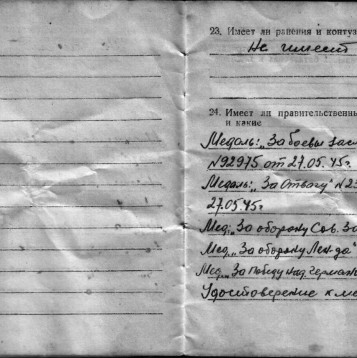 23. Имеет ли ранения и контуз
Не имеет
24. Имеет ли правительственны
и какие
Медаль: „За боевы засл
№92975 от 27.05.45г.
Медаль: „За Отвагу" №23
27.05.45г.
Мед. „За оборону Сов. За
Мед. „За оборону Лен-да"
Мед. „За Победу над Германи
Удостоверение к ме